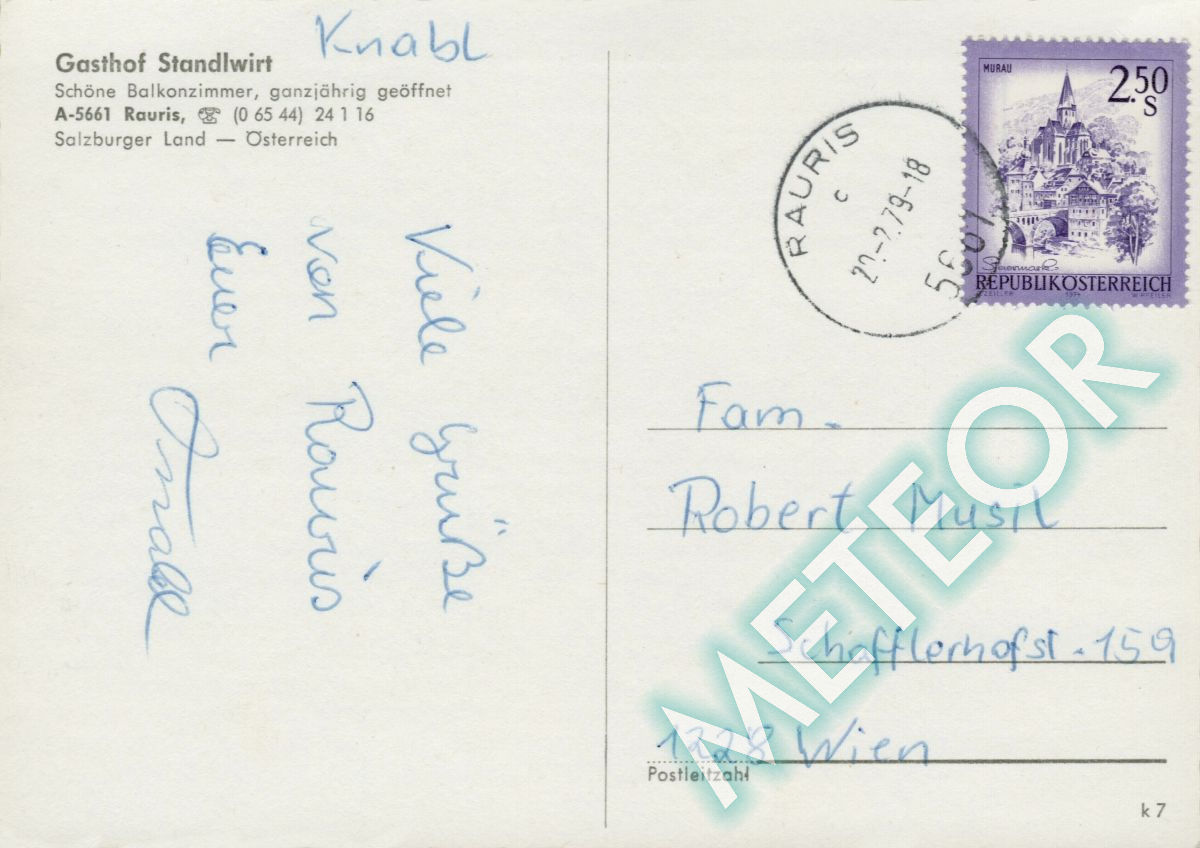 Knabl
Gasthof Standlwirt
Schöne Balkonzimmer, ganzjährig geöffnet
A-5661 Rauris, ☎ (0 65 44) 24 1 16
Salzburger Land — Österreich
Viele Grüße
von Rauris
Euer
MURAU
2.50
S
Steiermark
REPUBLIK ÖSTERREICH
ZEILLER 1974 WIPFEILER
RAURIS
c
.79-18
5661
Fam.
Robert Musil
Schafflerhofst. 159
1228 Wien
Postleitzahl
k 7
METEOR